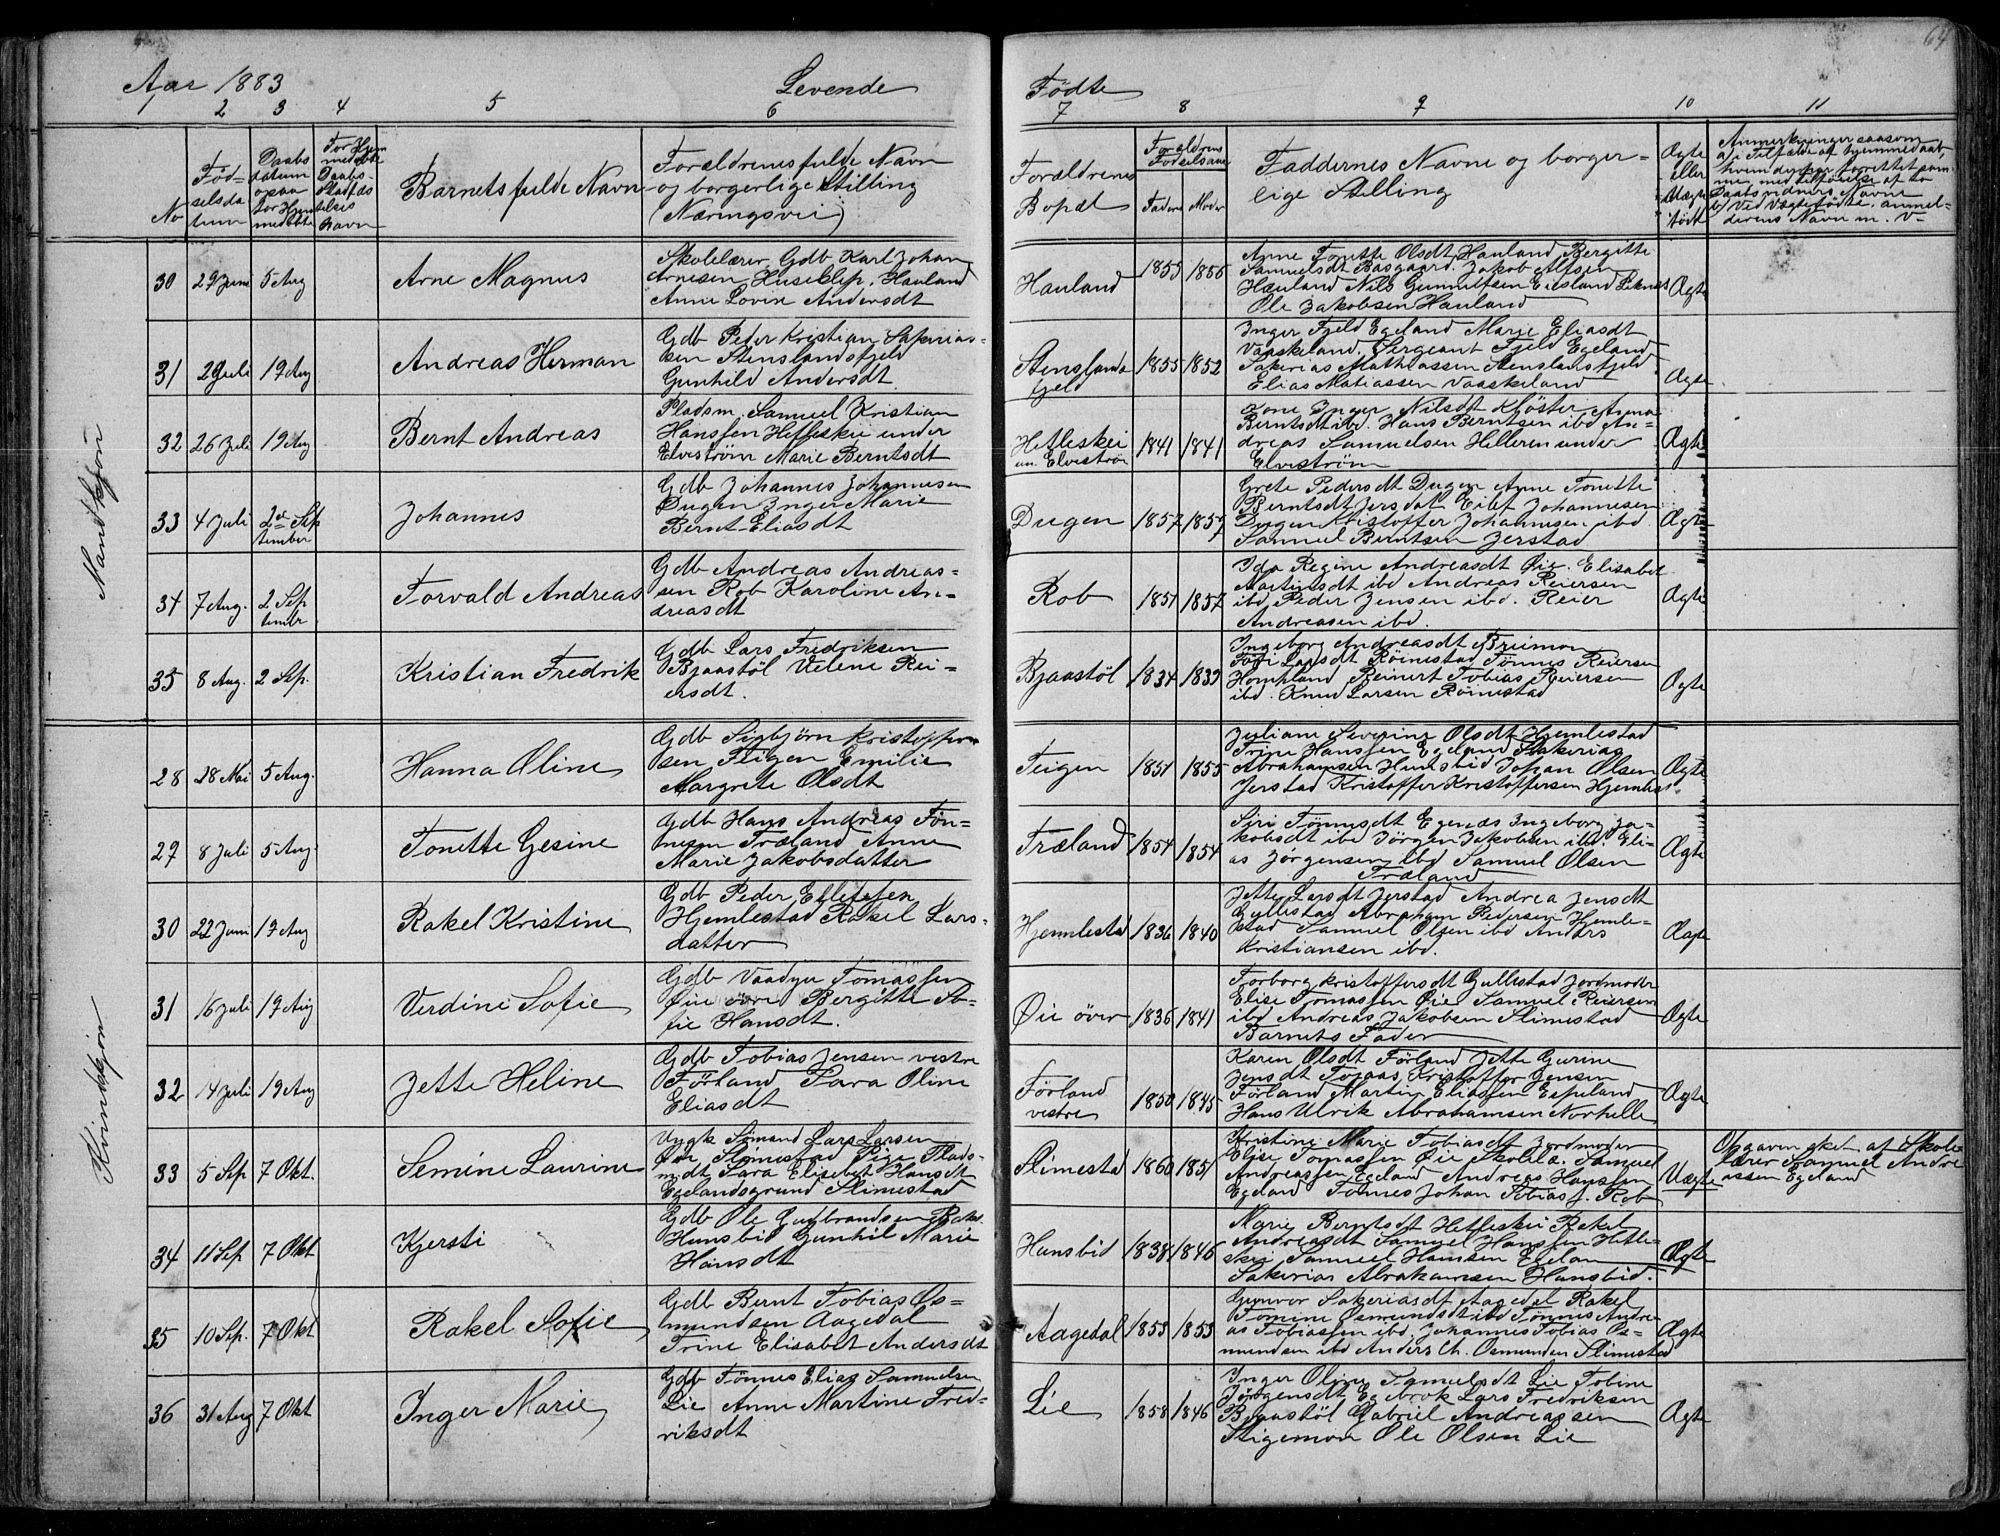 64
Aar 1883 Levende Fødte
1 2 3 4 5 6 7 8 9 10 11
No
Fød-
selsda
tum
Daabs
datum
Barnets fulde Navn
Forældrenes fulde Navn
og borgerlige Stilling
(Næringsvei)
Forældrenes
Bopæl
Forældrens
Fødselsaar
Fader Moder
Faddernes Navne og borger=
lige Stilling
Ægte
eller
Uægte
født
Mandkjøn
30 29 Juni 5 Aug Arne Magnus
Skolelærer, Gdb Karl Johan
Arnesen Huseklep, Hauland
Anne Lovise Andersdt
Hauland 1855 1856
Anne Tonette Olsdt Hauland Bergitte
Samuelsdt Jakob Alfsen
Hauland Nils Gunnufsen Eitland
Ole Jakobsen Hauland
Ægte
31 2 Juli 19 Aug Andreas Herman
Gdb Peder Kristian Sakerias-
sen Stenslandsfjeld
Gunhild Andersdt
Stenslands
fjeld 1855 1852
Inger Fjeld Egeland Marie Eliasdt
Vaaskeland. Sergeant Fjeld Egeland
Sakerias Mathiassen Stenslandsfjeld
Elias Matiassen Vaaskeland
Ægte
32 26 Juli 19 Aug Bernt Andreas
Pladsm. Samuel Kristian
Hanssen Hetleskei under
Elveström Marie Berntsdt
Hetleskei
un. Elveström 1841 1841
Kone Inger Nilsdt Kløster Anna
Berntsdt ibd. Hans Berntsen ibd An-
dreas Samuelsen Helleren under
Elveström
Ægte
33 4 Juli 2d Sep
tember Johannes
Gdb Johannes Johannesen
Dugen Inger Marie
Bernt Eliasdt
Dugen 1857 1857
Grete Pedersdt Dugen Anne Tonette
Berntsdt Jersdat Eilef Johannesen
Dugen Kristoffer Johannesen ibd
Samuel Berntsen Jerstad
Ægte
34 7 Aug. 2 Sep
tembr Torvald Andreas
Gdb Andreas Andreas=
sen Rob Karoline An=
dreasdt
Rob 1851 1857
Ida Regine Andreasdt Øie. Elisabet
Martinsdt ibd Andreas Reiersen
ibd Peder Jensen ibd. Reier
Andreasen ibd.
Ægte
35 8 Aug. 2 Sep. Kristian Fredrik
Gdb Lars Fredriksen
Bjaastöl Velene Rei=
ersdt.
Bjaastöl 1834 1839
Ingeborg Andreasdt Breimon
Larsdt Römestad Tönnes Reiersen
Hompland Reinert Tobias Reiersen
ibd. Knud Larsen Römestad
Ægte
Kvindekjøn
28 28 Mai 5 Aug. Hanna Oline
Gdb Sigbjörn Kristoffer
sen Teigen Emilie
Margrete Olsdt
Teigen 1851 1855
Juliane Severine Olsdt Hjemlestad
Trine Hanssen Egeland Sakerias
Abrahamsen Hunsbid Johan Olsen
Jerstad Kristoffer Kristoffersen Hjemlest
Ægte
29 8 Juli 5 Aug. Tonette Gesine
Gdb Hans Andreas Tön=
nesen Træland Anne
Marie Jakobsdatter
Træland 1854 1854
Siri Tönnesdt Egenæs Ingeborg Ja-
kobsdt ibd Jörgen Jakobsen ibd. Eli-
as Jörgensen ibd Samuel Olsen
Træland
Ægte
30 22 Juni 19 Aug Rakel Kristine
Gdb Peder Ellefsen
Hjemlestad Rakel Lars-
datter
Hjemlestad 1836 1840
Jette Larsdt Jerstad Andrea Jensdt
Gyllestad Abraham Pedersen Hjemle-
stad Samuel Olsen ibd Anders
Kristiansen ibd.
Ægte
31 16 Juli 19 Aug Verdine Sofie
Gdb Tomassen
Øie övre Bergitte So-
fie Hansdt.
Øie över 1836 1841
Torborg Kristoffersdt Gyllestad Jordmoder
Elise Tomassen Øie Samuel Reiersen
ibd Andreas Jakobsen Slimestad
Barnets Fader
Ægte
32 14 Juli 19 Aug Jette Heline
Gdb Tobias Jensen vestre
Förland Sara Oline
Eliasdt
Förland
vestre 1850 1845
Karen Olsdt Förland Jette Gurine
Jensdt Kristoffer Jensen
Förland Martin Eliassen Espeland
Hans Ulrik Abrahamsen Norhelle
Ægte
33 5 Sep 7 Okt. Semine Laurine
Ungk Sömand Lars Larsen
Slimestad Pige Plads-
mdt Sara Elisebet Hansdt
Egelandsgrund Slimestad
Slimestad 1860 1851
Kristine Marie Tobiasdt Jordmoder
Elise Tomassen Øie Skolelæ. Samuel
Andreassen Egeland Andreas Hanssen
Egeland Tönnes Johan Tobiass. Rob
Uægte
Opgaven sket af Skole
lærer Samuel Andre
assen Egeland
34 11 Sep 7 Okt Kjersti
Gdb Ole Gudbrandsen
Hunsbid Gunhil Marie
Hansdt
Hunsbid 1838 1846
Marie Berntsdt Hetleskei Rakel
Andreasdt Samuel Hanssen Hetle-
skei Samuel Hansen Egelan
Sakerias Abrahamsen Hunsbid.
Ægte
35 10 Sep. 7 Okt Rakel Sofie
Gdb Bernt Tobias Os=
mundsen Aagedal
Trine Elisabet Andersdt
Aagedal 1853 1853
Gunvor Sakeriasdt Aagedal Rakel
Tomine Osmundsdt ibd Tönnes Andre-
as Tobiassen ibd. Johannes Tobias Os-
mundsen ibd Anders Ch. Osmundsen Slimestad
Ægte
36 31 Aug 7 Okt Inger Marie
Gdb Tönnes Elias Samuelsen
Lie Anne Martine Fred-
riksdt
Lie 1858 1846
Inger Oline Samuelsdt Lie Tobine
Jörgensdt Egebrok Lars Fredriksen
Bjaastöl Gabriel Andreassen
Stigemon Ole Olsen Lie
Ægte